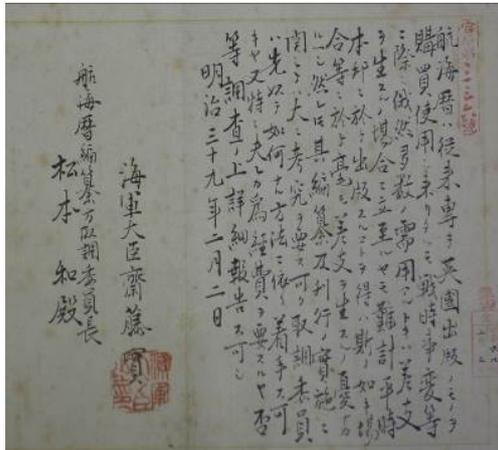 航海暦ハ従来専ラ英國出版ノモノヲ
購買使用シ来リタルモ戦時事変等
ニ際シ俄然多数ノ需用アルトキハ差支
ヲ生スルノ場合ニ立至ルヤモ難計平時
本邦ニ於テ出版スルコトヲ得ハ斯ノ如キ場
合等ニ於テ毫モ差支ヲ生スルノ憂ナカ
ルヘシ然レトモ其編纂及刊行ノ實施ニ
関シテハ大ニ考究ヲ要ス可ク取調委員
ハ先以テ如何ナル方法ニ依リ着手ス可
キヤ又特ニ夫レカ為経費ヲ要スルヤ否
等調査ノ上詳細報告ス可シ
明治三十九年二月二日
海軍大臣齋藤實
航海暦編纂方取調委員長
松本和殿